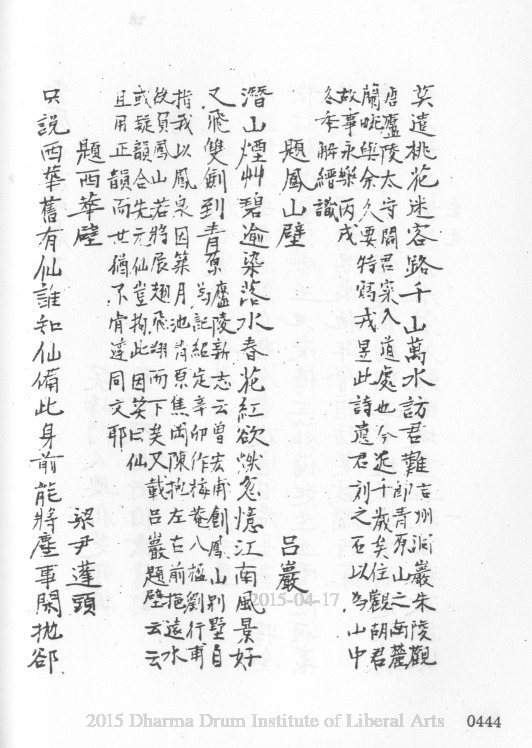 莫遣桃花迷客路千山萬水訪君難吉州洞巖朱陵觀
即青原山之南麓
唐廬陵太守閻君寀入道處也今近千歲矣住觀胡君
蘭畹與余久要特寫戎昱此詩遺君刻之石以為山中
故事永樂丙戌
冬季解縉識
題鳳山壁 呂巖
潛山煙艸碧逾染落水春花紅欲燃忽憶江南風景好
又飛雙劍到青原廬陵新志云曾宏甫創鳳山別墅自
為記紹定辛卯作梅菴八楹劉行甫
指我以鳳泉因築月池背原焦岡陳抱左右前拖遠水
故員鳳山若將展翅飛翔而下矣又載呂巖題壁云云
或疑韻合先元仙豈拘此因笑曰仙
且用正韻而世猶不肯遵同文耶
題西華壁 梁尹蓬頭
只說西華舊有仙誰知仙備此身前能將塵事閑拋郤
2015-04-17
2015 Dharma Drum Institute of Liberal Arts 0444